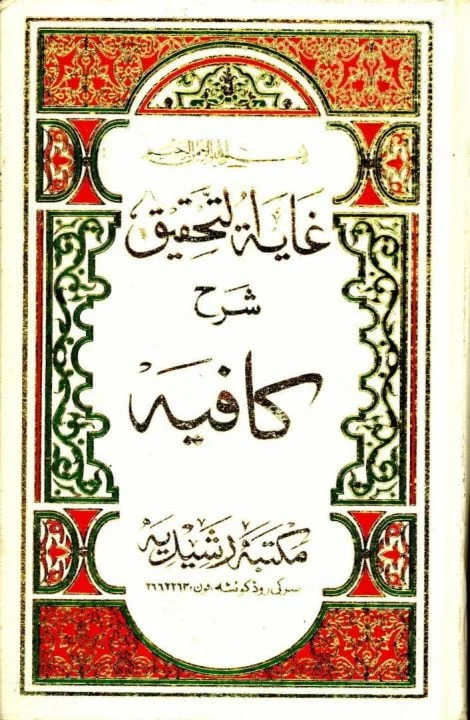 بسم الله الرحمن الرحيم
غاية التحقيق
شرح
كافيه
مكتبه رشيديه
سركى روڈ كوئٹه، فون: ٢٦٦٢٢٦٣